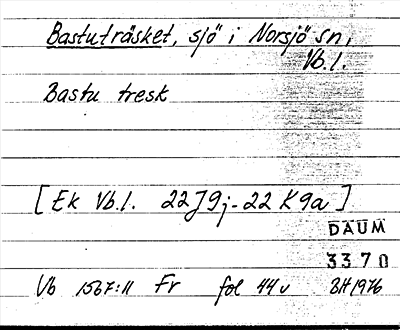 Bastuträsket, sjö i Norsjö sn,
Vb.l.
Bastu tresk
[Ek Vb.l. 22J9j-22K9a]
DAUM
3370
Vb 1567:11 Fr fol 44v BH1976